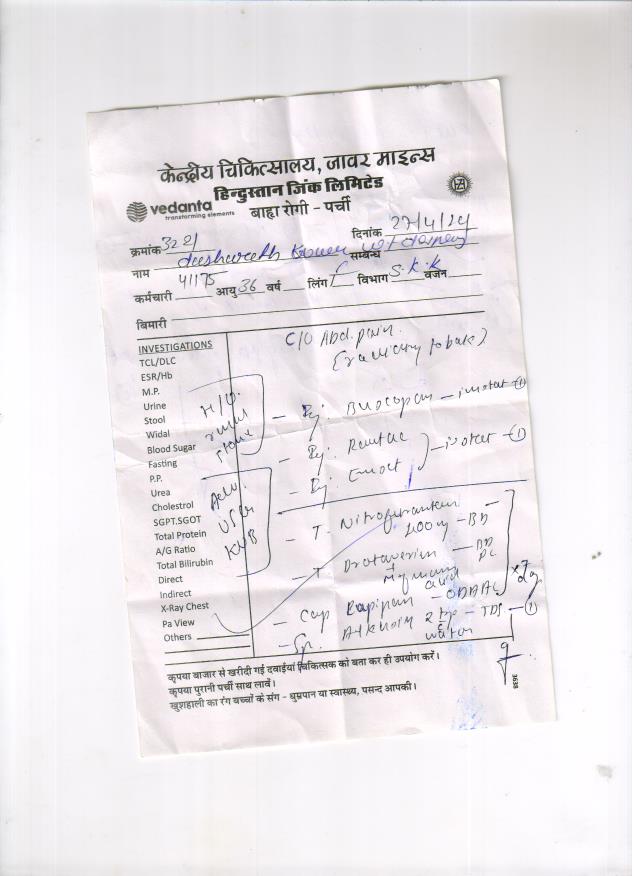 केन्द्रीय चिकित्सालय, जावर माइन्स
हिन्दुस्तान जिंक लिमिटेड
vedanta
transforming elements
बाह्य रोगी - पर्ची
क्रमांक 3221 दिनांक 27/4/24
नाम सम्बन्ध
कर्मचारी 41175 आयु 36 वर्ष लिंग F विभाग S.K.K वजन
बिमारी
INVESTIGATIONS
TCL/DLC
ESR/Hb
M.P.
Urine
Stool
Widal
Blood Sugar
Fasting
P.P.
Urea
Cholestrol
SGPT.SGOT
Total Protein
A/G Ratio
Total Bilirubin
Direct
Indirect
X-Ray Chest
Pa View
Others
H/O
renal
stone
Adv.
USG
KUB
C/O Abd. pain
(radiating to back)
- Inj. Buscopan - instat - 1
- Inj. Rantac
- Inj. Emset - instat - 1
- T. Nitrofurantoin
100mg - BD
- T. Drotaverin - BD
acid PC
- Cap Rapipan - OD AAC
x 7 days
- Sy. Alkacitr 2 tsp - TDS - 1
water
कृपया बाजार से खरीदी गई दवाईयां चिकित्सक को बता कर ही उपयोग करें।
कृपया पुरानी पर्ची साथ लावें।
खुशहाली का रंग बच्चों के संग - धुम्रपान या स्वास्थ्य, पसन्द आपकी।
3638